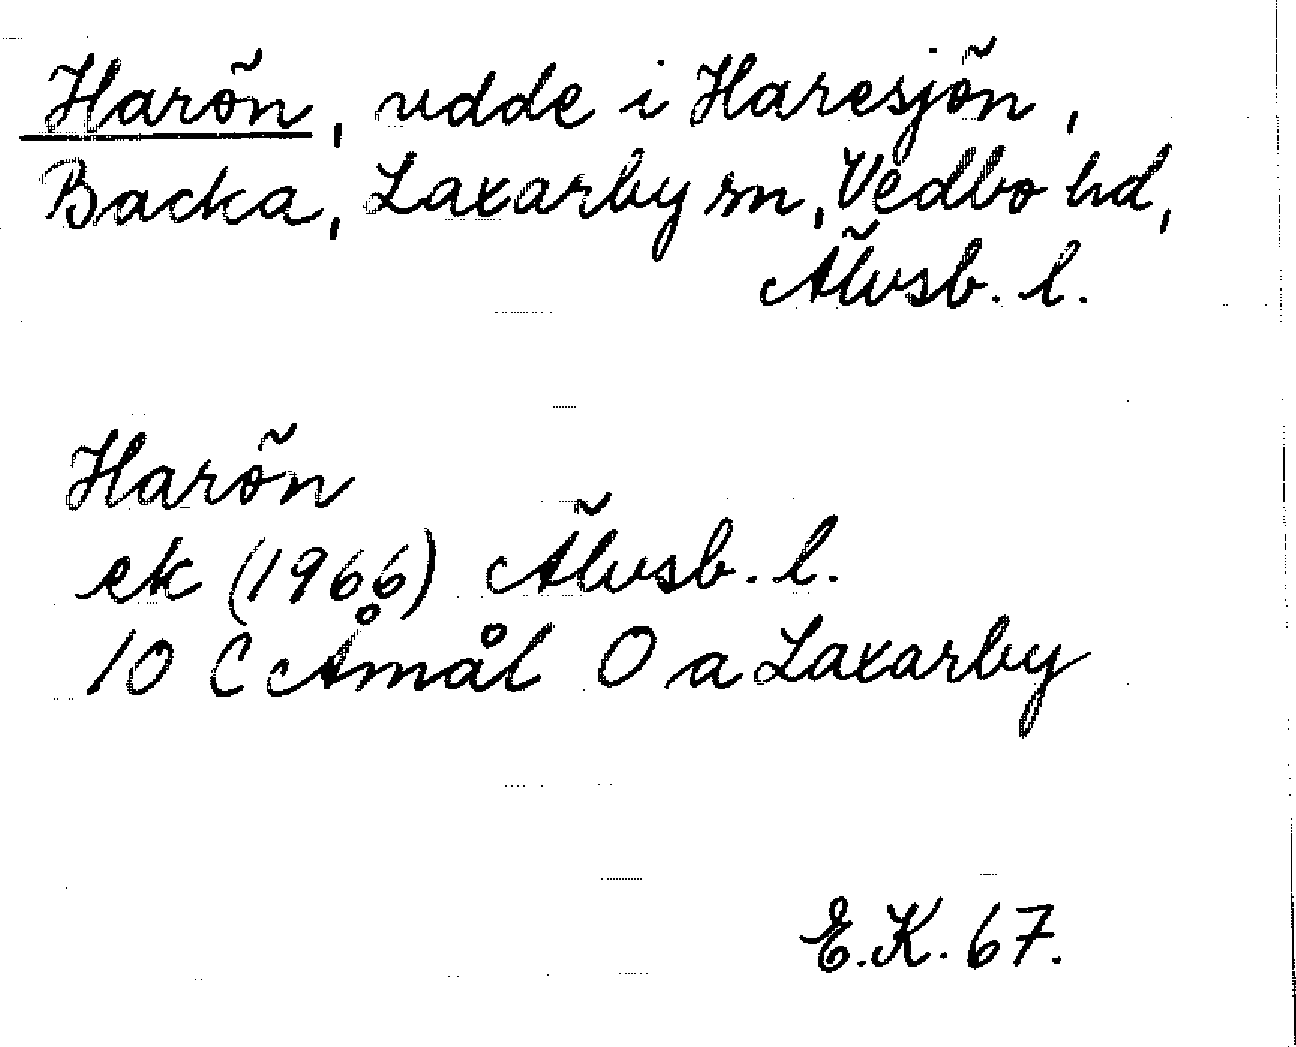 Harön, udde i Haresjön,
Backa, Laxarby sn, Vedbo hd,
Älvsb. l.
Harön
ek (1966) Älvsb. l.
10 C Åmål O a Laxarby
E.K. 67.